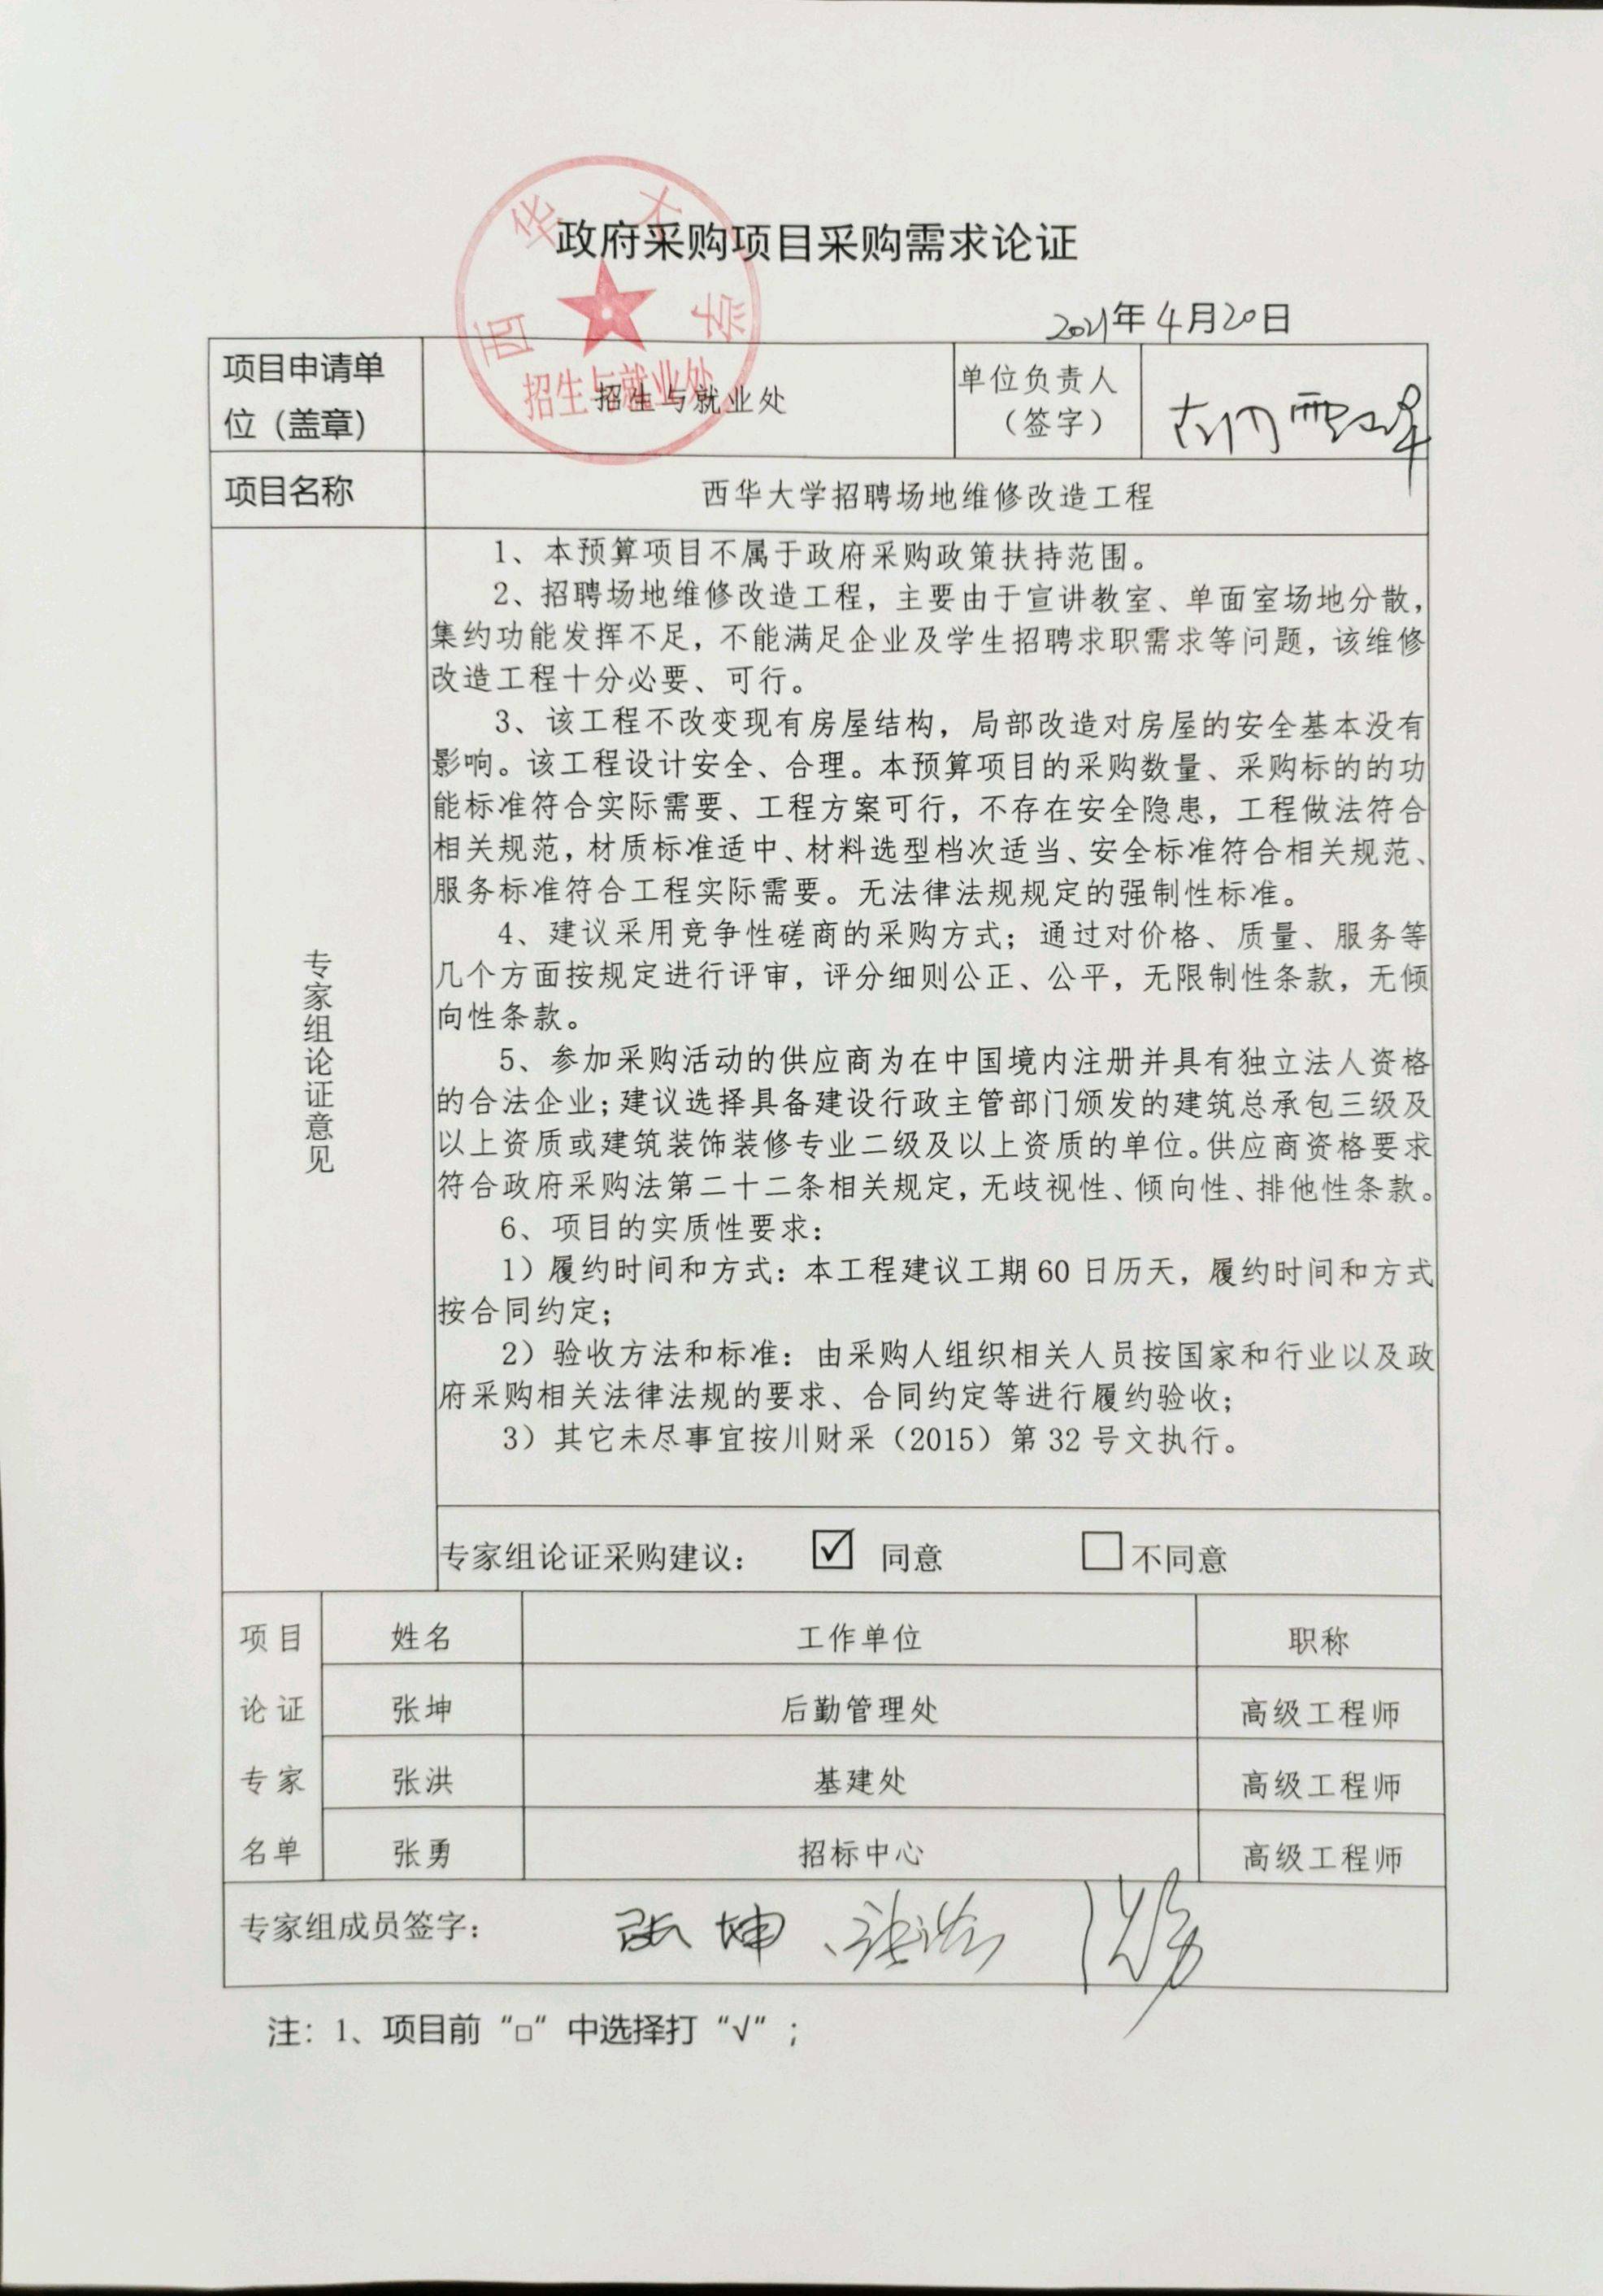 政府采购项目采购需求论证
西华大学
招生与就业处
2021年4月20日
项目申请单
位（盖章）
招生与就业处
单位负责人
（签字）
项目名称
西华大学招聘场地维修改造工程
专家组论证意见
1、本预算项目不属于政府采购政策扶持范围。
2、招聘场地维修改造工程，主要由于宣讲教室、单面室场地分散，
集约功能发挥不足，不能满足企业及学生招聘求职需求等问题，该维修
改造工程十分必要、可行。
3、该工程不改变现有房屋结构，局部改造对房屋的安全基本没有
影响。该工程设计安全、合理。本预算项目的采购数量、采购标的的功
能标准符合实际需要、工程方案可行，不存在安全隐患，工程做法符合
相关规范，材质标准适中、材料选型档次适当、安全标准符合相关规范、
服务标准符合工程实际需要。无法律法规规定的强制性标准。
4、建议采用竞争性磋商的采购方式；通过对价格、质量、服务等
几个方面按规定进行评审，评分细则公正、公平，无限制性条款，无倾
向性条款。
5、参加采购活动的供应商为在中国境内注册并具有独立法人资格
的合法企业；建议选择具备建设行政主管部门颁发的建筑总承包三级及
以上资质或建筑装饰装修专业二级及以上资质的单位。供应商资格要求
符合政府采购法第二十二条相关规定，无歧视性、倾向性、排他性条款。
6、项目的实质性要求：
1）履约时间和方式：本工程建议工期60日历天，履约时间和方式
按合同约定；
2）验收方法和标准：由采购人组织相关人员按国家和行业以及政
府采购相关法律法规的要求、合同约定等进行履约验收；
3）其它未尽事宜按川财采（2015）第32号文执行。
专家组论证采购建议： ☑ 同意 □不同意
项目 姓名 工作单位 职称
论证 张坤 后勤管理处 高级工程师
专家 张洪 基建处 高级工程师
名单 张勇 招标中心 高级工程师
专家组成员签字： 张坤、张洪 张勇
注：1、项目前“□“中选择打“√”；